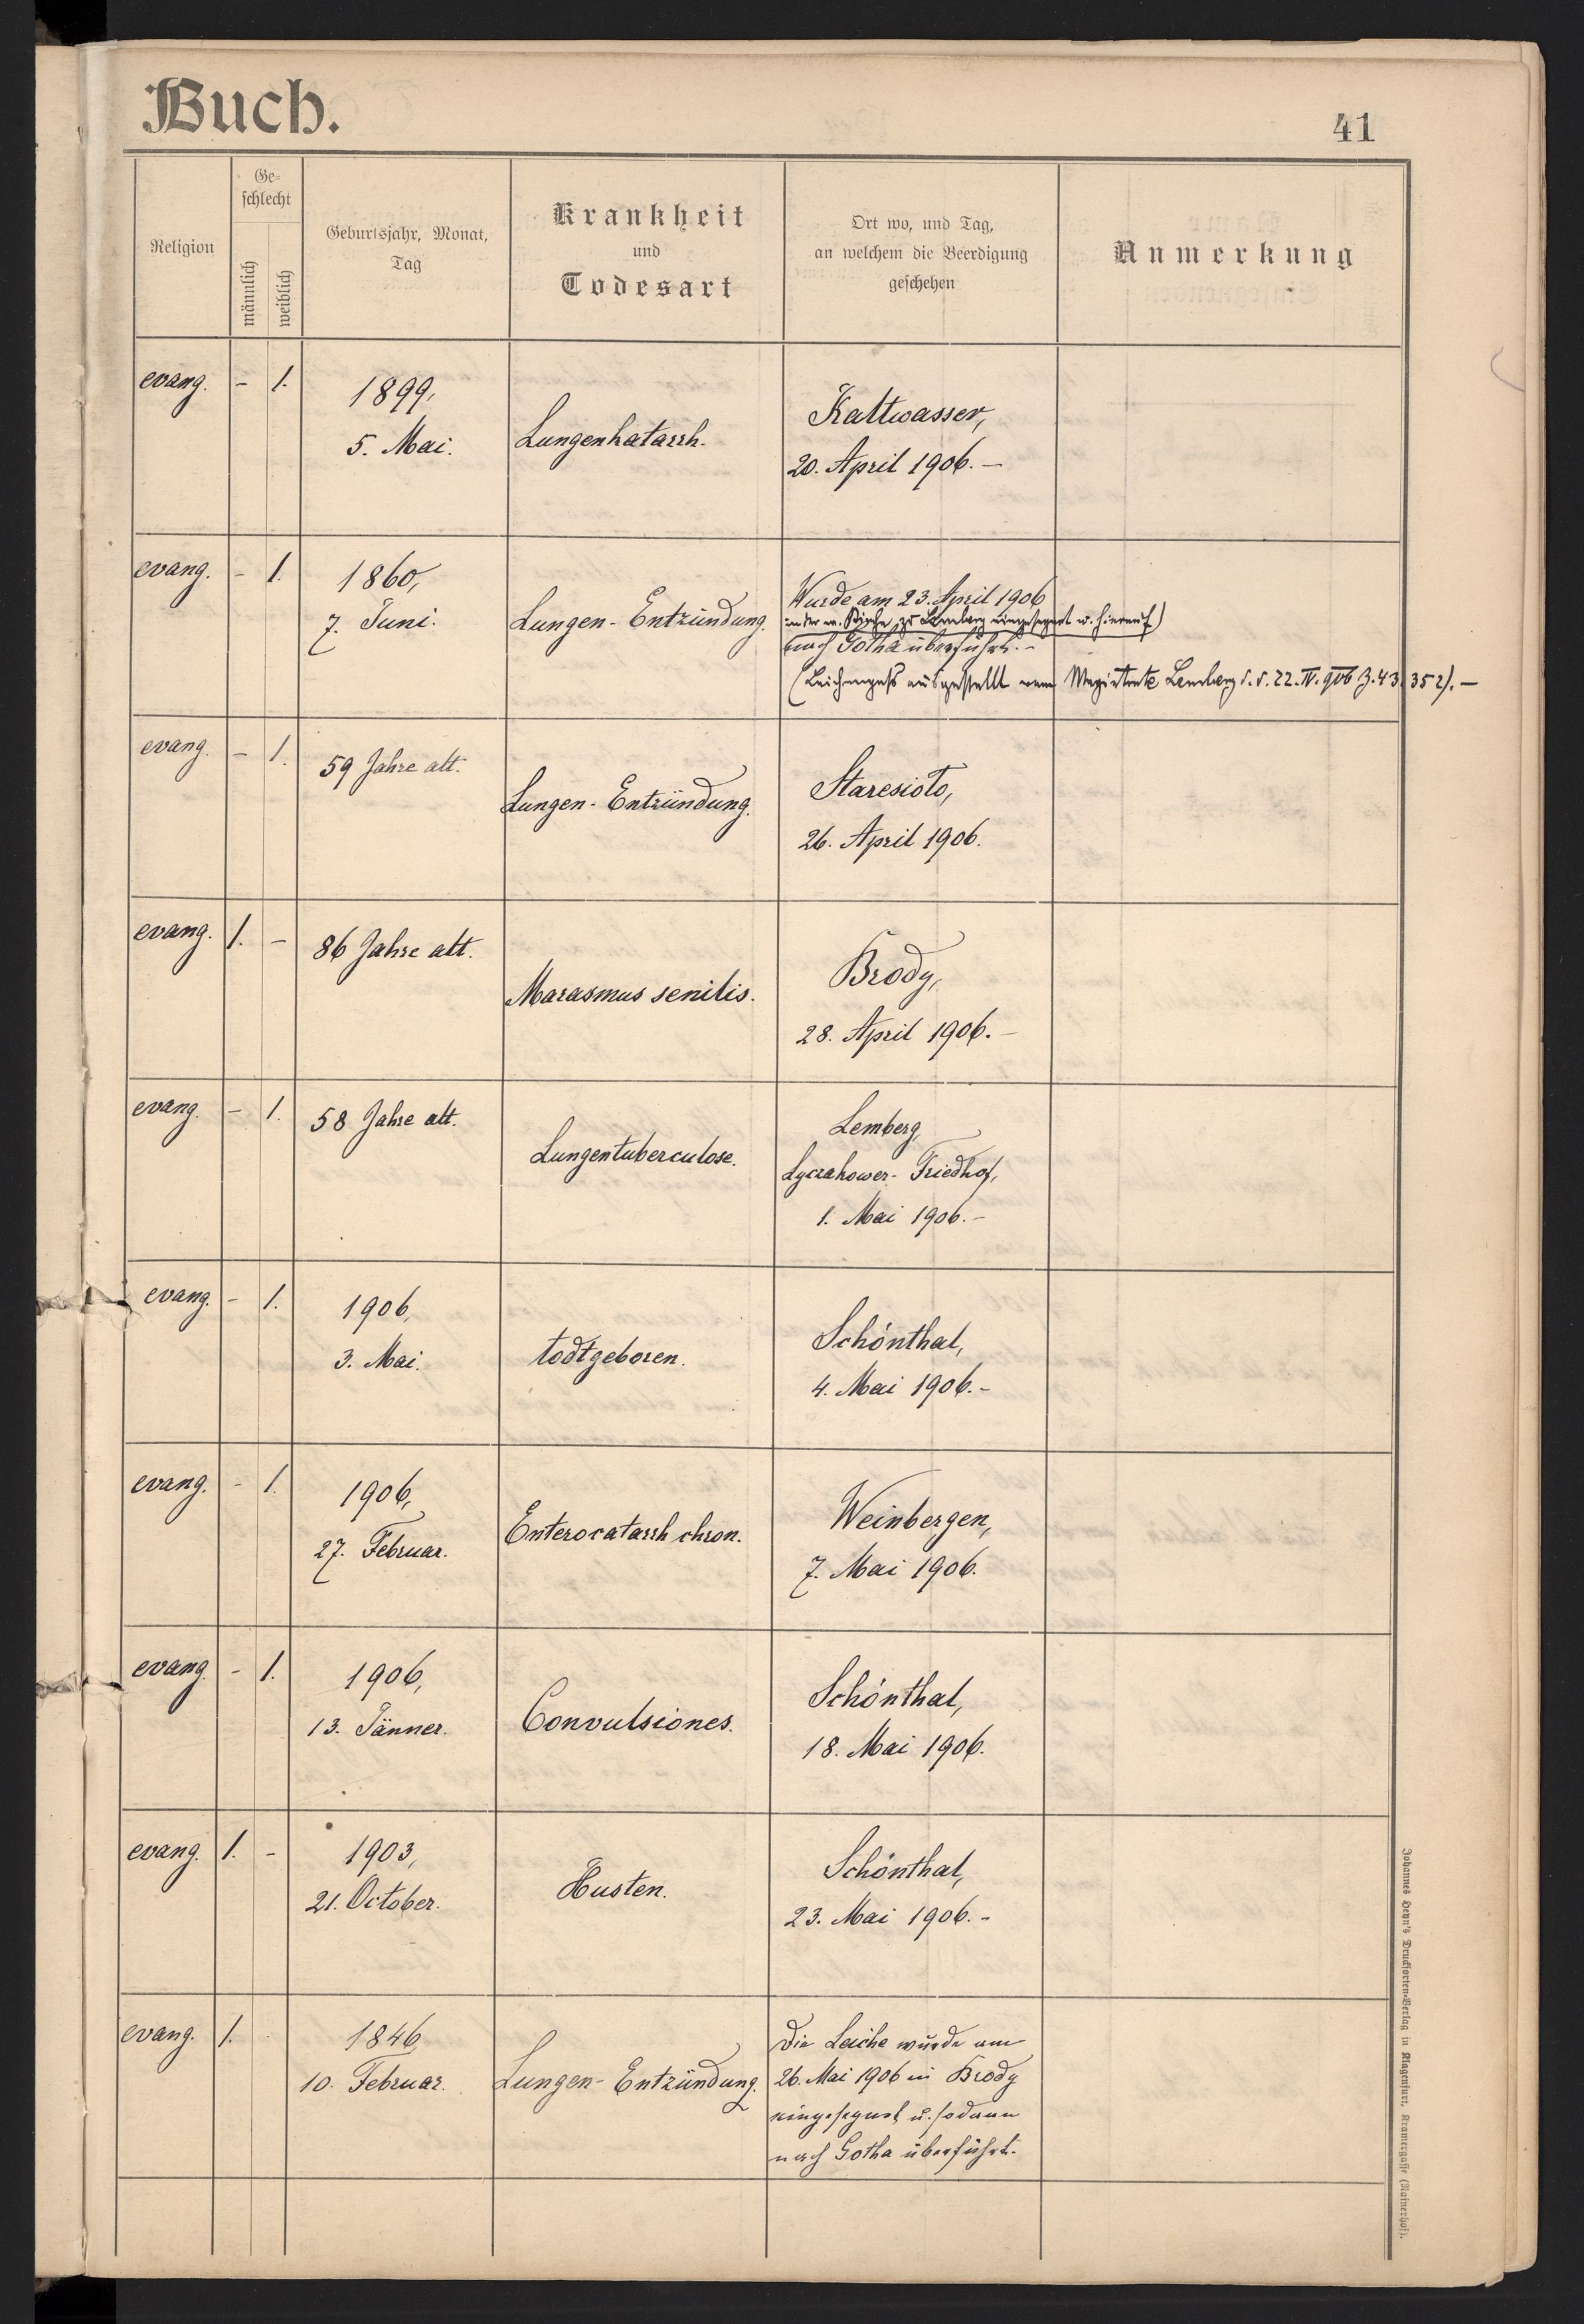 Buch.
41
Religion
Ge-
schlecht
männlich
weiblich
Geburtsjahr, Monat,
Tag
Krankheit
und
Todesart
Ort wo, und Tag,
an welchem die Beerdigung
geschehen
Anmerkung
evang. - 1.
1899,
5. Mai.
Lungenkatarrh.
Kaltwasser,
20. April 1906. -
evang. - 1.
1860,
7. Juni.
Lungen-Entzündung.
Wurde am 23. April 1906
in der ev. Kirche zu Lemberg eingesegnet u. hierauf)
nach Gotha überführt. -
(Leichenpass ausgestellt vom Magistrate Lemberg d. d. 22. IV. 906 Z. 43.352). -
evang. - 1.
59 Jahre alt.
Lungen-Entzündung.
Staresioto,
26. April 1906.
evang. 1. -
86 Jahre alt.
Marasmus senilis.
Brody,
28. April 1906. -
evang. - 1.
58 Jahre alt.
Lungentuberculose.
Lemberg,
Lyczakower-Friedhof,
1. Mai 1906. -
evang. - 1.
1906,
3. Mai.
todtgeboren.
Schönthal,
4. Mai 1906. -
evang. - 1.
1906,
27. Februar.
Enterocatarrh chron.
Weinbergen,
7. Mai 1906.
evang. - 1.
1906,
13. Jänner.
Convulsiones.
Schönthal,
18. Mai 1906.
evang. 1. -
1903,
21. October.
Husten.
Schönthal,
23. Mai 1906. -
evang. 1.
1846,
10. Februar.
Lungen-Entzündung.
Die Leiche wurde am
26. Mai 1906 in Brody
eingesegnet u. sodann
nach Gotha überführt.
Johannes Heyn's Drucksorten-Verlag in Klagenfurt, Kramergasse (Rainerhof).